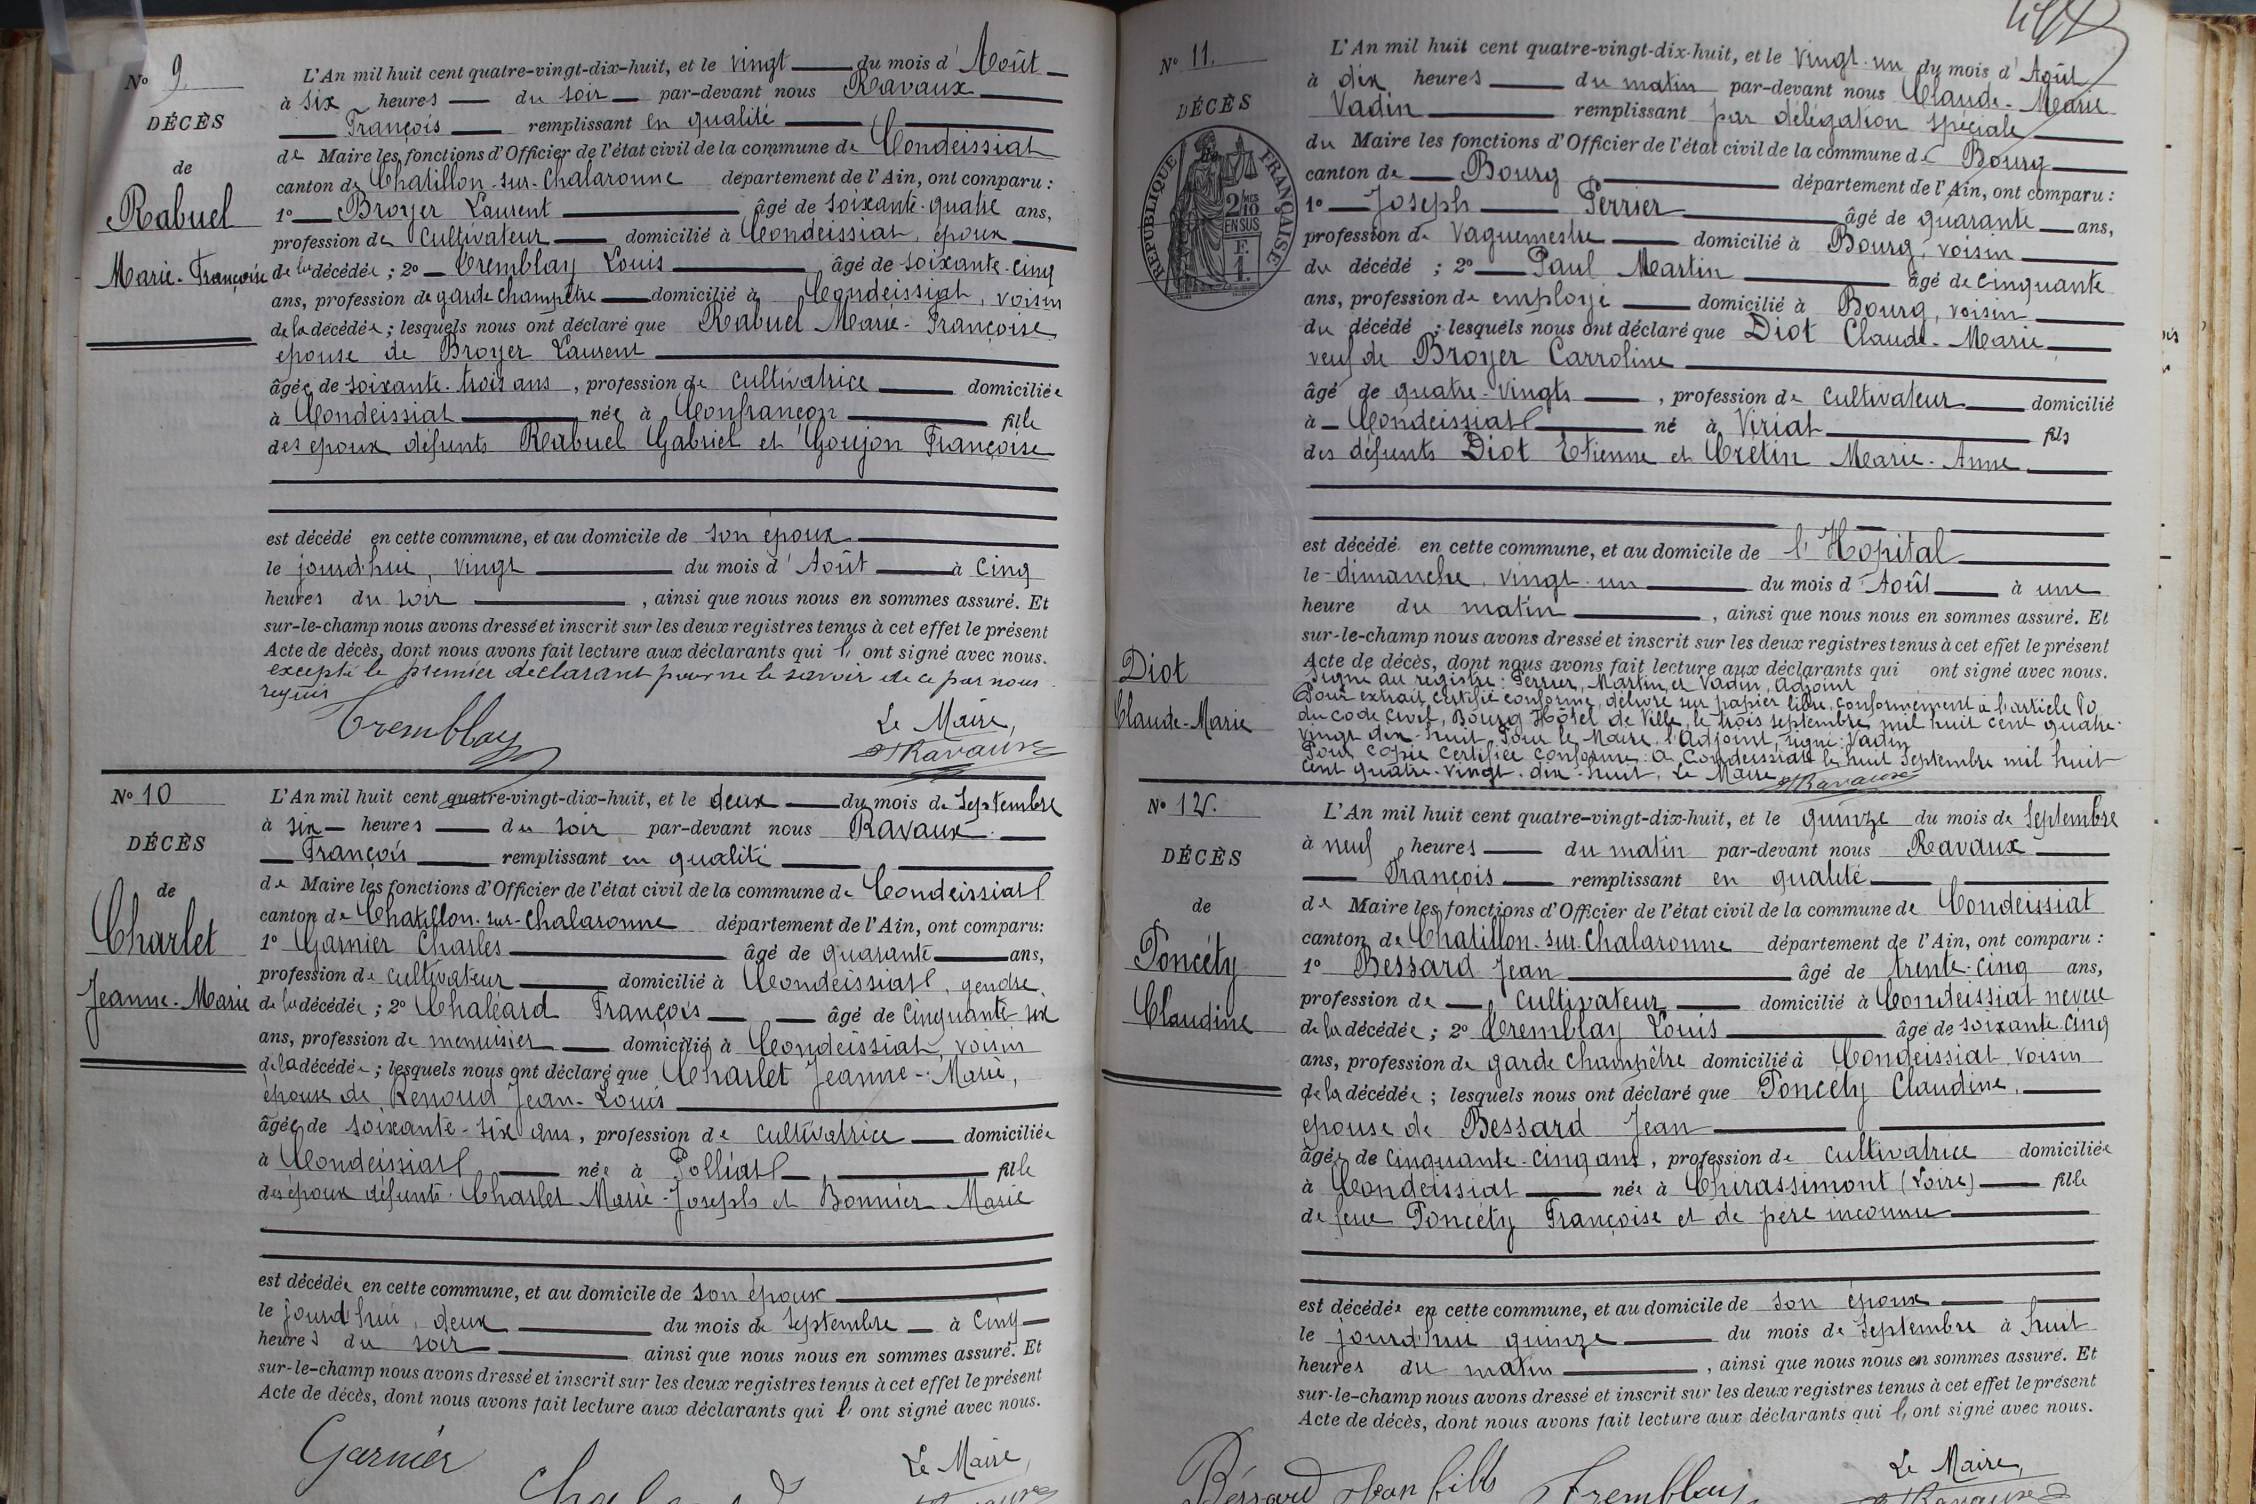 No 9
DÉCÈS
de
Rabuel
Marie-Françoise
L'An mil huit cent quatre-vingt-dix-huit, et le vingt du mois d'Août
à six heures du soir par-devant nous Ravaux
François remplissant en qualité
de Maire les fonctions d'Officier de l'état civil de la commune de Condeissiat
canton de Chatillon-sur-Chalaronne département de l'Ain, ont comparu :
1o Broyer Laurent âgé de soixante-quatre ans,
profession de cultivateur domicilié à Condeissiat, époux
de la décédée ; 2o Tremblay Louis âgé de soixante-cinq
ans, profession de garde champêtre domicilié à Condeissiat, voisin
de la décédée ; lesquels nous ont déclaré que Rabuel Marie-Françoise
épouse de Broyer Laurent
âgée de soixante-trois ans, profession de cultivatrice domiciliée
à Condeissiat née à Confrançon fille
des époux défunts Rabuel Gabriel et Goujon Françoise
est décédé en cette commune, et au domicile de son époux
le jourd'hui, vingt du mois d'Août à cinq
heures du soir, ainsi que nous nous en sommes assuré. Et
sur-le-champ nous avons dressé et inscrit sur les deux registres tenus à cet effet le présent
Acte de décès, dont nous avons fait lecture aux déclarants qui l' ont signé avec nous.
excepté le premier déclarant pour ne le savoir de ce par nous
requis
Tremblay
Le Maire,
Ravaux
No 10
DÉCÈS
de
Charlet
Jeanne-Marie
L'An mil huit cent quatre-vingt-dix-huit, et le deux du mois de Septembre
à six heures du soir par-devant nous Ravaux
François remplissant en qualité
de Maire les fonctions d'Officier de l'état civil de la commune de Condeissiat
canton de Chatillon-sur-Chalaronne département de l'Ain, ont comparu :
1o Garnier Charles âgé de quarante ans,
profession de cultivateur domicilié à Condeissiat, gendre
de la décédée ; 2o Chaléard François âgé de cinquante six
ans, profession de menuisier domicilié à Condeissiat, voisin
de la décédée ; lesquels nous ont déclaré que Charlet Jeanne-Marie,
épouse de Renoud Jean-Louis
âgée de soixante-six ans, profession de cultivatrice domiciliée
à Condeissiat née à Polliat, fille
des époux défunts Charlet Marie-Joseph et Bonnier Marie
est décédée en cette commune, et au domicile de son époux
le jourd'hui, deux du mois de Septembre à cinq
heures du soir ainsi que nous nous en sommes assuré. Et
sur-le-champ nous avons dressé et inscrit sur les deux registres tenus à cet effet le présent
Acte de décès, dont nous avons fait lecture aux déclarants qui l' ont signé avec nous.
Garnier
Le Maire,
No 11.
DÉCÈS
RÉPUBLIQUE FRANÇAISE
2/10MES
EN SUS
Diot
Claude-Marie
L'An mil huit cent quatre-vingt-dix-huit, et le vingt-un du mois d'Août
à dix heures du matin par-devant nous Claude-Marie
Vadin remplissant par délégation spéciale
du Maire les fonctions d'Officier de l'état civil de la commune de Bourg
canton de Bourg département de l'Ain, ont comparu :
1o Joseph Perrier âgé de quarante ans,
profession de vaguemestre domicilié à Bourg, voisin
du décédé ; 2o Paul Martin âgé de cinquante
ans, profession de employé domicilié à Bourg, voisin
du décédé ; lesquels nous ont déclaré que Diot Claude-Marie
veuf de Broyer Carroline
âgé de quatre-vingts, profession de cultivateur domicilié
à Condeissiat né à Viriat fils
des défunts Diot Etienne et Crétin Marie-Anne
est décédé en cette commune, et au domicile de l'Hopital
le dimanche, vingt-un du mois d'Août à une
heure du matin, ainsi que nous nous en sommes assuré. Et
sur-le-champ nous avons dressé et inscrit sur les deux registres tenus à cet effet le présent
Acte de décès, dont nous avons fait lecture aux déclarants qui ont signé avec nous.
Signé au registre : Perrier, Martin, et Vadin, Adjoint
Pour extrait certifié conforme, délivré sur papier libre, conformément à l'article 80
du code civil, Bourg Hôtel de Ville, le trois septembre mil huit cent quatre-
vingt dix-huit. Pour le Maire, l'Adjoint, signé : Vadin
Pour copie certifiée conforme : à Condeissiat le huit Septembre mil huit
cent quatre-vingt-dix-huit. Le Maire Ravaux
No 12.
DÉCÈS
de
Poncéty
Claudine
L'An mil huit cent quatre-vingt-dix-huit, et le quinze du mois de Septembre
à neuf heures du matin par-devant nous Ravaux
François remplissant en qualité
de Maire les fonctions d'Officier de l'état civil de la commune de Condeissiat
canton de Chatillon-sur-Chalaronne département de l'Ain, ont comparu :
1o Bessard Jean âgé de trente-cinq ans,
profession de cultivateur domicilié à Condeissiat neveu
de la décédée ; 2o Tremblay Louis âgé de soixante-cinq
ans, profession de garde champêtre domicilié à Condeissiat voisin
de la décédée ; lesquels nous ont déclaré que Poncéty Claudine,
épouse de Bessard Jean
âgée de cinquante-cinq ans, profession de cultivatrice domiciliée
à Condeissiat née à Chirassimont (Loire) fille
de feue Poncéty Françoise et de père inconnu
est décédée en cette commune, et au domicile de son époux
le jourd'hui quinze du mois de Septembre à huit
heures du matin, ainsi que nous nous en sommes assuré. Et
sur-le-champ nous avons dressé et inscrit sur les deux registres tenus à cet effet le présent
Acte de décès, dont nous avons fait lecture aux déclarants qui l' ont signé avec nous.
Béssard Jean fils Tremblay
Le Maire,
Ravaux